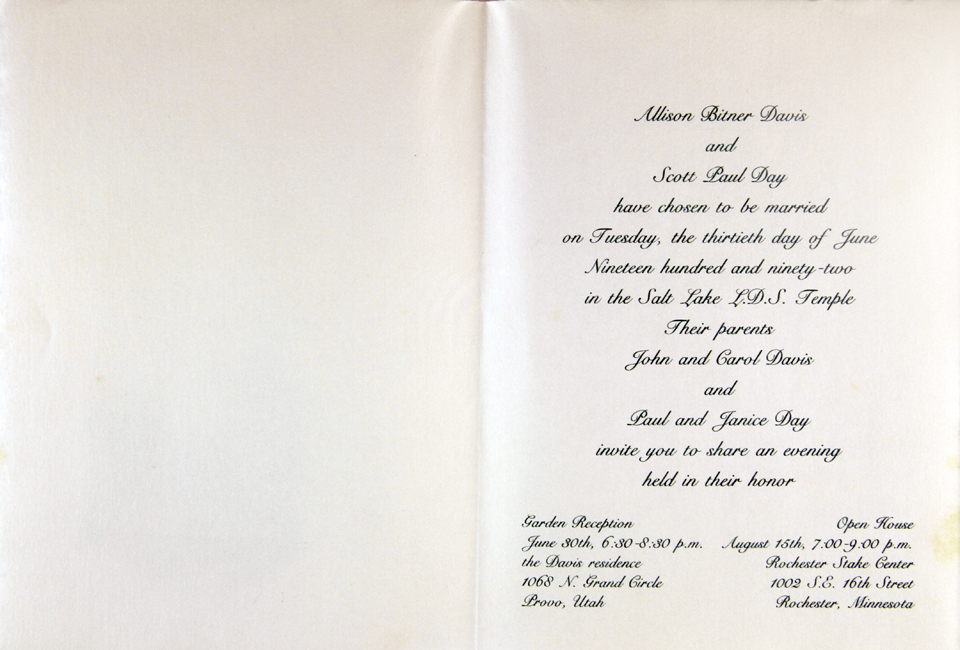 Allison Bitner Davis
and
Scott Paul Day
have chosen to be married
on Tuesday, the thirtieth day of June
Nineteen hundred and ninety-two
in the Salt Lake L.D.S. Temple
Their parents
John and Carol Davis
and
Paul and Janice Day
invite you to share an evening
held in their honor
Garden Reception
June 30th, 6:30-8:30 p.m.
the Davis residence
1068 N. Grand Circle
Provo, Utah
Open House
August 15th, 7:00-9:00 p.m.
Rochester Stake Center
1002 S.E. 16th Street
Rochester, Minnesota